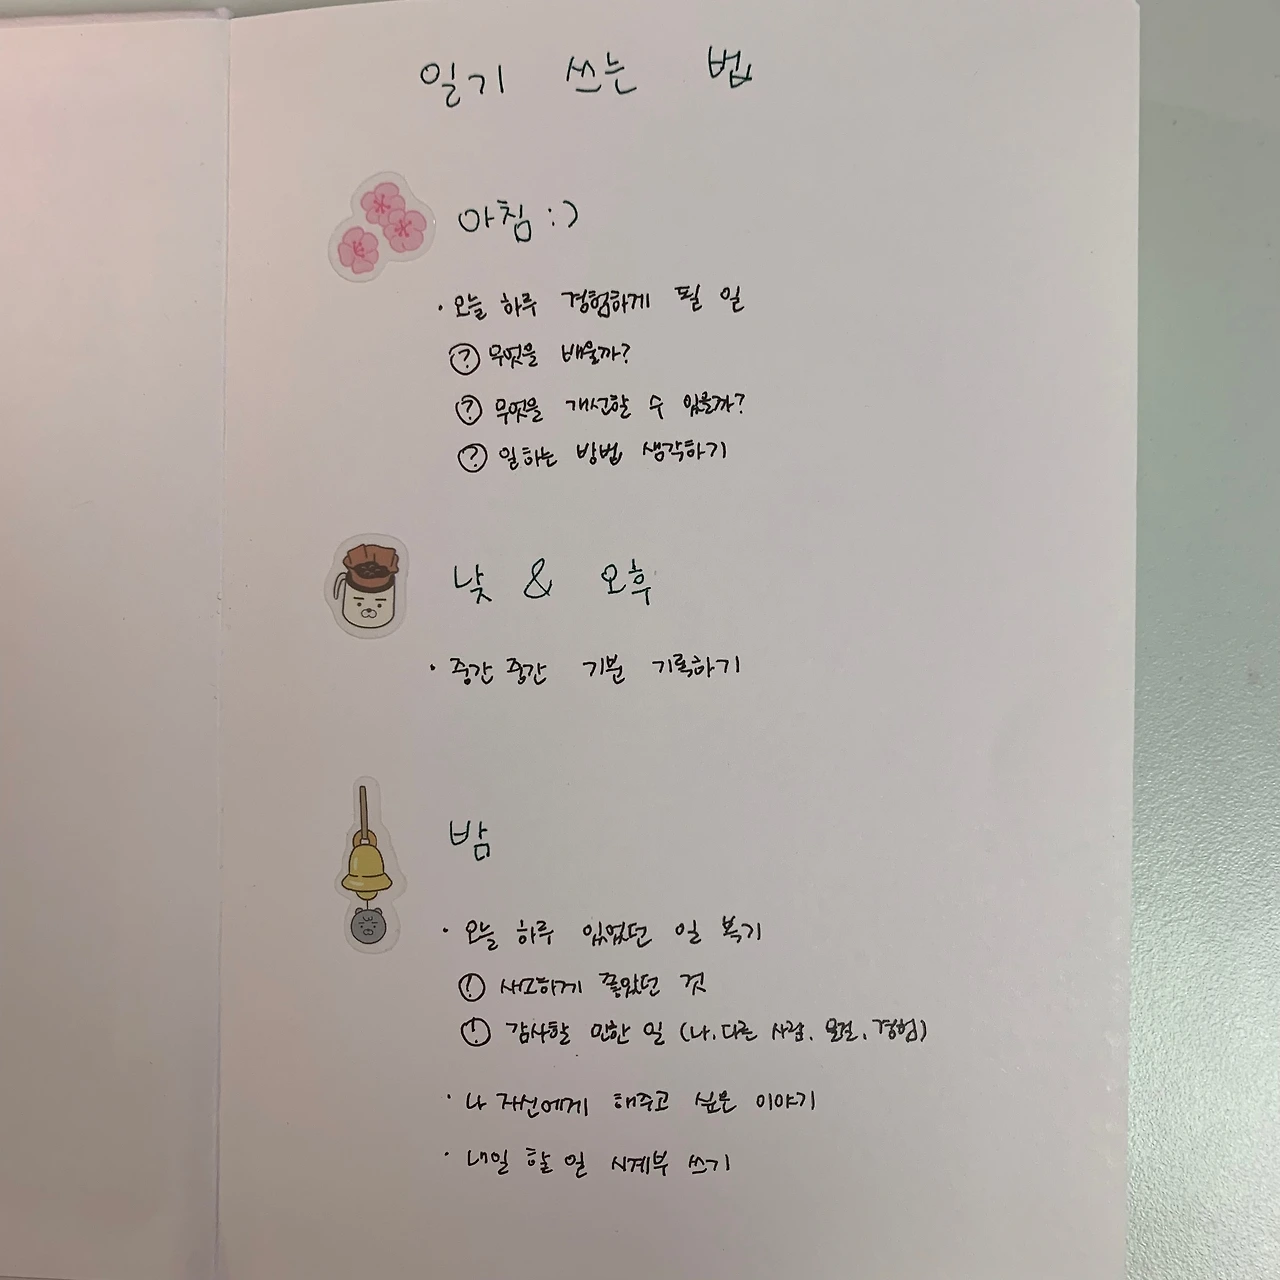 일기 쓰는 법
아침 :)
· 오늘 하루 경험하게 될 일
? 무엇을 배울까?
? 무엇을 개선할 수 있을까?
? 일하는 방법 생각하기
낮 & 오후
· 중간중간 기분 기록하기
밤
· 오늘 하루 있었던 일 복기
! 사소하게 좋았던 것
! 감사할 만한 일 (나, 다른 사람, 물건, 경험)
· 나 자신에게 해주고 싶은 이야기
· 내일 할 일 시계부 쓰기